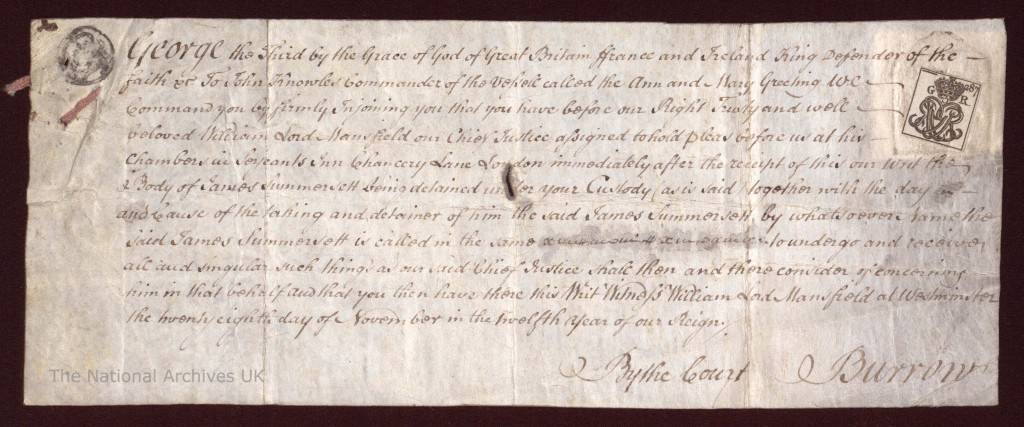 George the Third by the Grace of God of Great Britain ffrance and Ireland King Defender of the
faith &c To John Knowles Commander of the Vessell called the Ann and Mary Greeting We
Command you firmly Injoining you that you have before our Right Trusty and well
beloved William Lord Mansfield our Chief Justice assigned to hold pleas before us at his
Chambers in Serjeants Inn Chancery Lane London immediately after the receipt of this our Writ the
Body of James Summersett being detained under your Custody as is said together with the day
and Cause of the taking and detainer of him the said James Summersett by whatsoever name the
said James Summersett is called in the same to undergo and receive
all and singular such things as our said Chief Justice shall then and there consider of concerning
him in that behalf and that you then have there this Writ Witness William Lord Mansfield at Westminster
the twenty eighth day of November in the twelfth Year of our Reign.
By the Court
Burrow
G R
The National Archives UK